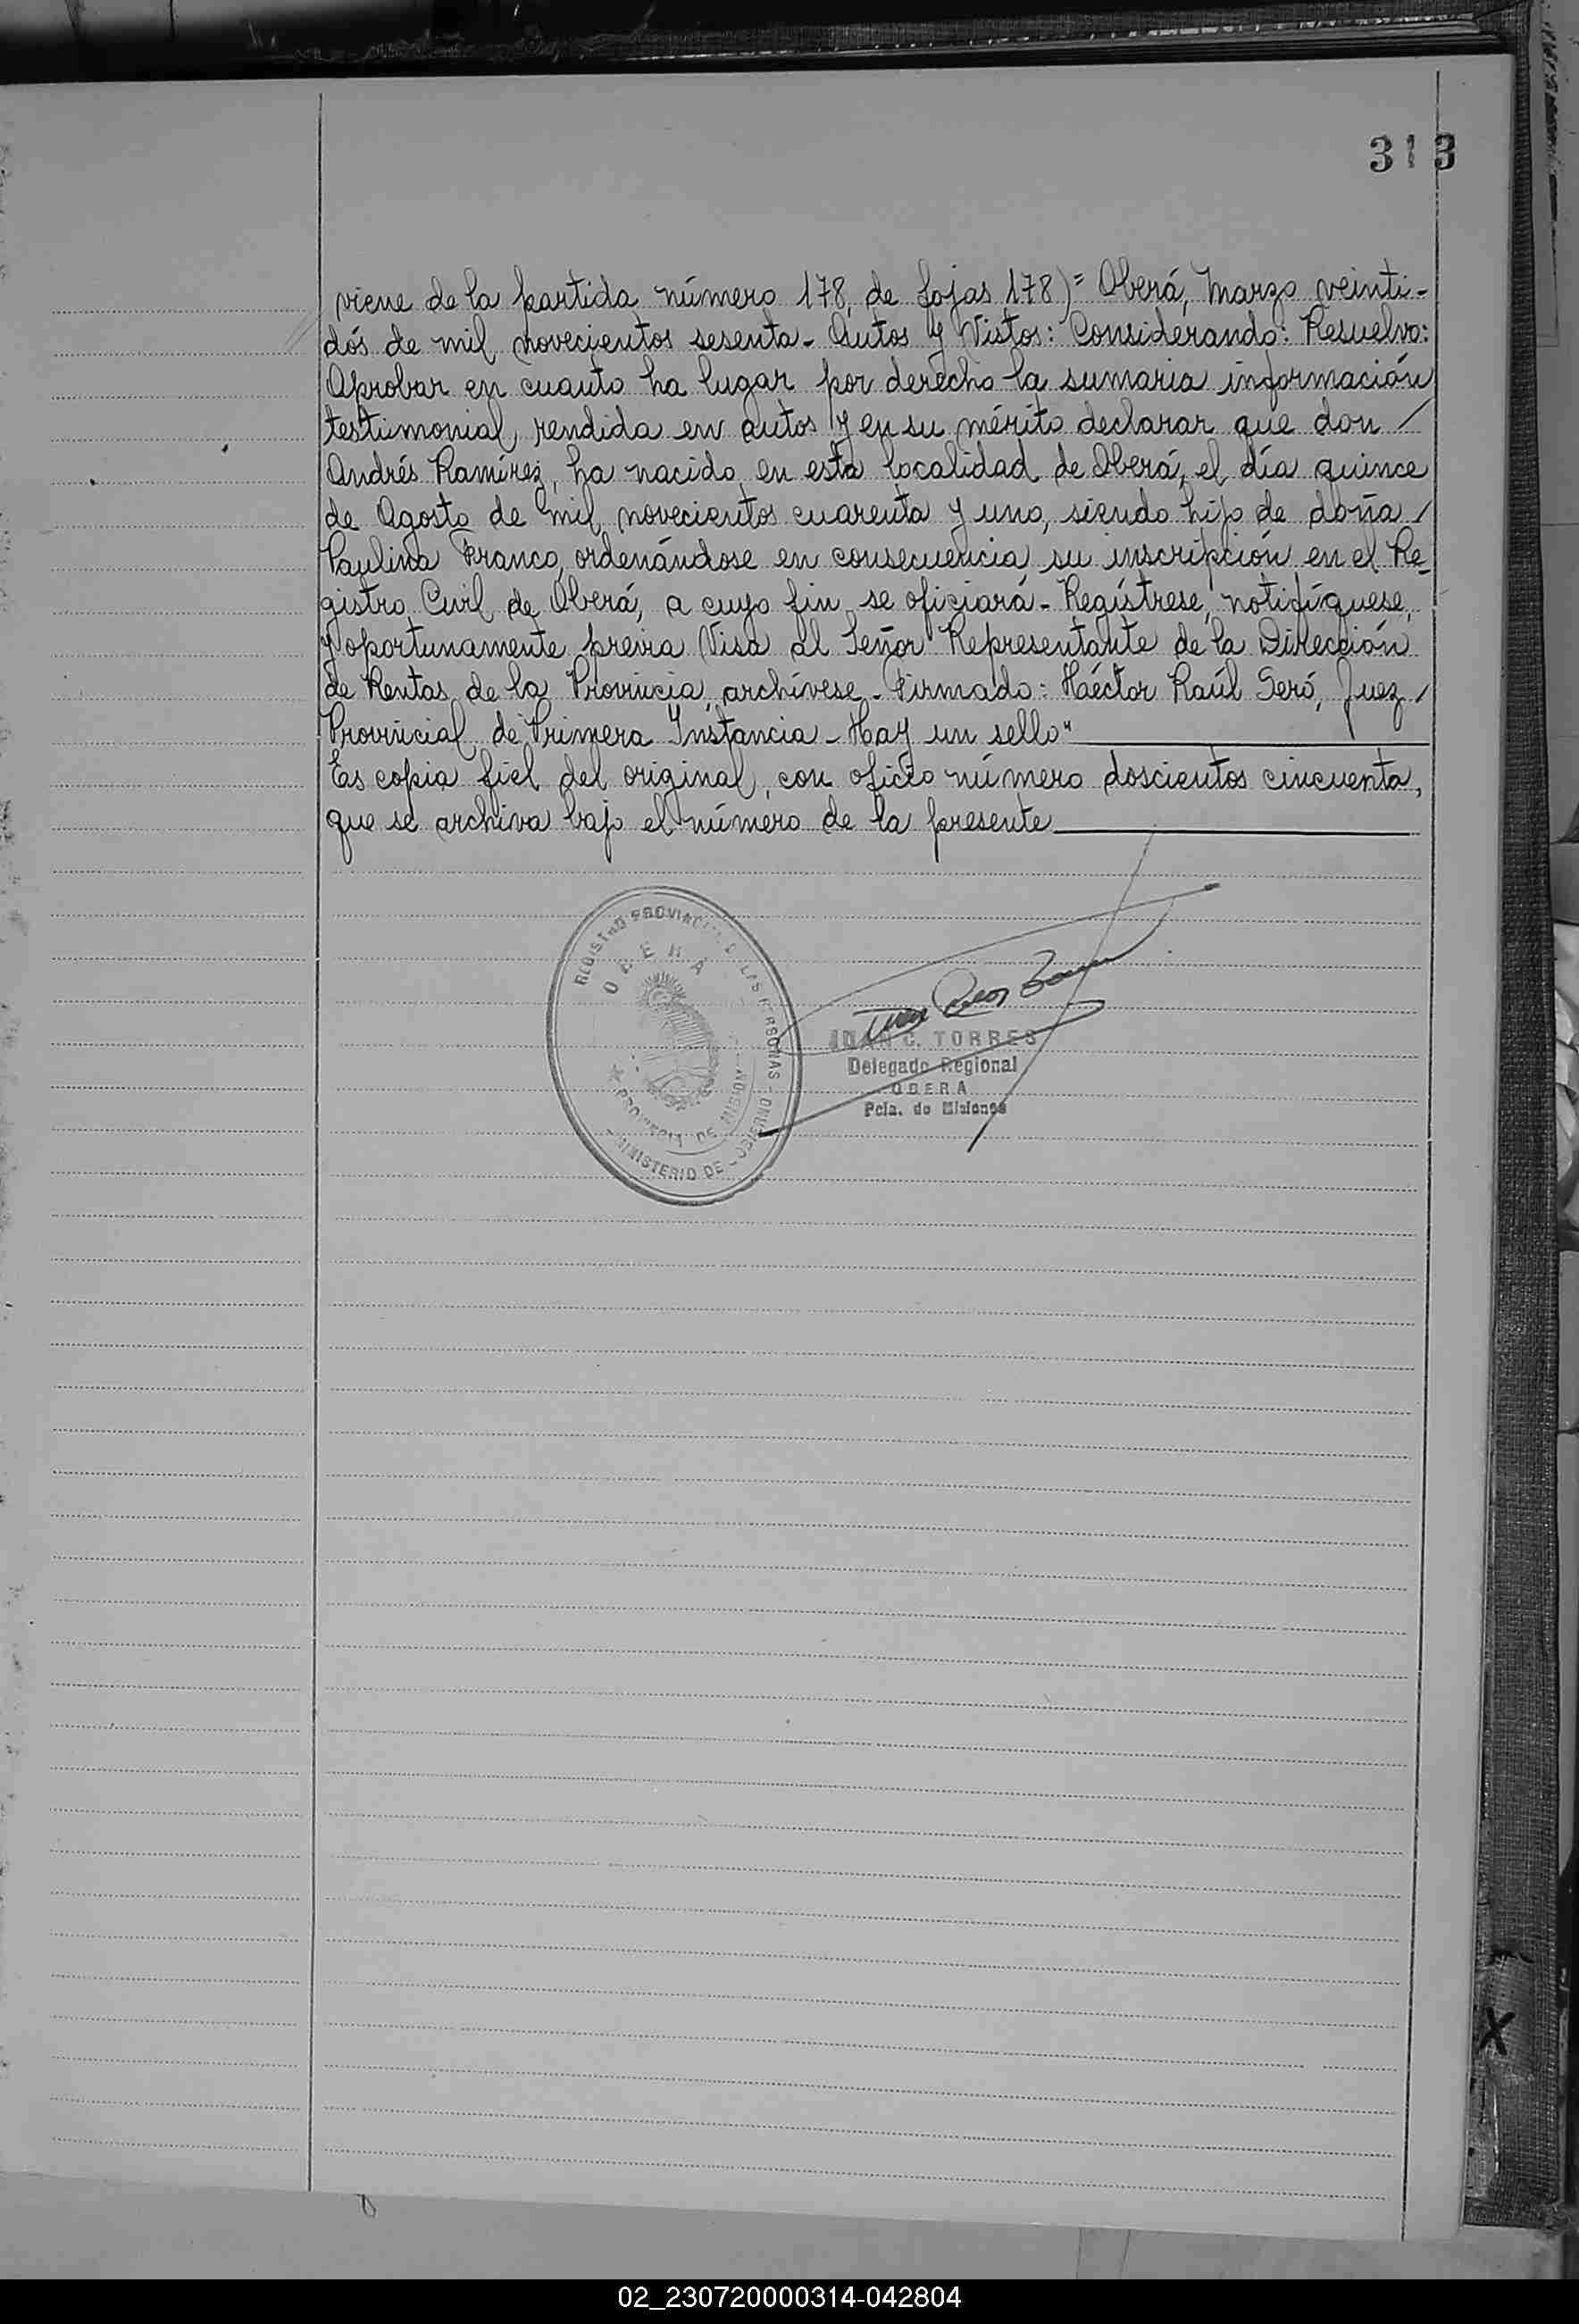 313
viene de la partida número 178, de fojas 178)= Oberá, Marzo veinti-
dós de mil novecientos sesenta.- Autos y Vistos: Considerando: Resuelvo:
Aprobar en cuanto ha lugar por derecho la sumaria información
testimonial, rendida en autos y en su mérito declarar que don /
Andrés Ramírez, ha nacido en esta localidad de Oberá, el día quince
de Agosto de mil novecientos cuarenta y uno, siendo hijo de doña /
Paulina Franco, ordenándose en consecuencia su inscripción en el Re-
gistro Civil de Oberá, a cuyo fin se oficiará.- Regístrese, notifíquese,
y oportunamente previa Visa al Señor Representante de la Dirección
de Rentas de la Provincia, archívese.- Firmado: Haéctor Raúl Seró, Juez /
Provincial de Primera Instancia - Hay un sello"
Es copia fiel del original, con oficio número doscientos cincuenta,
que se archiva bajo el número de la presente
REGISTRO PROVINCIAL DE LAS PERSONAS
OBERÁ
PROVINCIA DE MISIONES
MINISTERIO DE GOBIERNO
JUAN C. TORRES
Delegado Regional
OBERA
Pcia. de Misiones
X
02_230720000314-042804